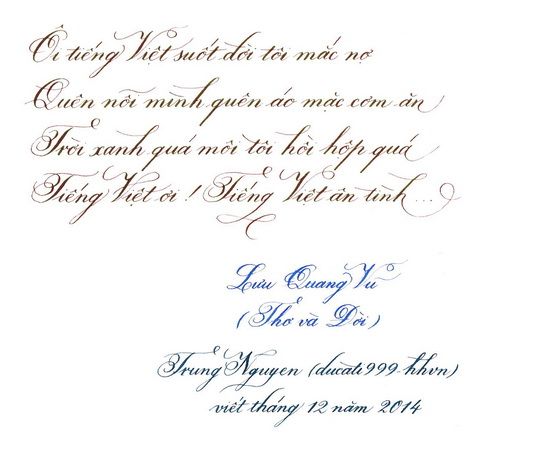 Ôi tiếng Việt suốt đời tôi mắc nợ
Quên nỗi mình quên áo mặc cơm ăn
Trời xanh quá môi tôi hồi hộp quá
Tiếng Việt ơi ! Tiếng Việt ân tình ...
Lưu Quang Vũ
(Thơ và Đời)
Trung Nguyen (ducati999-hhvn)
viết tháng 12 năm 2014